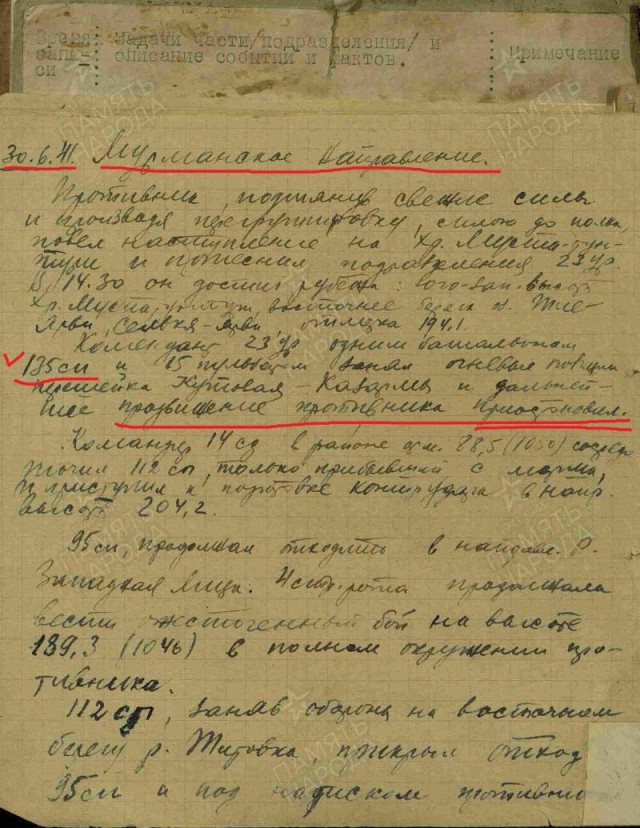 Время запи- си
Задачи части/подразделения/ и описание событий и фактов.
Примечание
ПАМЯТЬ НАРОДА
ПАМЯТЬ НАРОДА
30.6.41. Мурманское направление.
Противник, подтянув свежие силы
и произведя перегруппировку, силою до полка,
повел наступление на Хр. Муста-Тун-
тури и потеснил подразделения 23 ур.
В 14.30 он достиг рубежа: юго-зап. высот
Хр. Муста-тунтури, восточнее берег
Ярви, отметка 194,1.
Комендант 23 ур одним батальоном
135 сп и 15 пулеметов занял огневые позиции
перешейка Кутовая - Казарма и дальней-
шее продвижение противника приостановил.
Командир 14 сд в районе 88,5 (1050) сосредо
точил 112 сп, только прибывший с марша,
и приступил к подготовке контрудара в напр.
высоты 204,2.
95 сп, продолжал отходить в направл. р.
Западная Лица. 4 стр. рота продолжала
вести ожесточенный бой на высоте
189,3 (1046) в полном окружении про-
тивника.
112 сп, заняв оборону на восточном
берегу р. Титовка, прикрыл отход
95 сп и под натиском противни